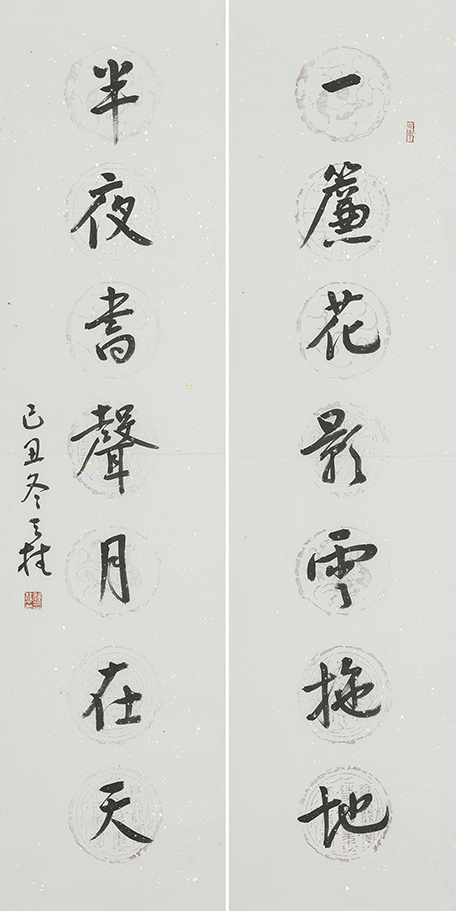 一簾花影雲拖地
半夜書聲月在天
己丑冬天桂